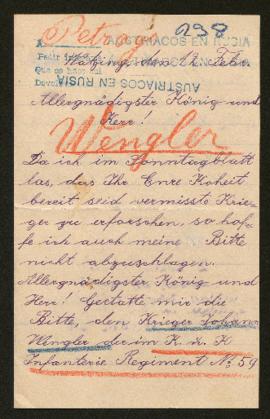 Petrog
258
AUSTRIACOS EN
AUSTRIACOS EN RUSIA
Pedir
Que se hace
Allergnädigster König und
Herr!
Wengler
Da ich im Sonntagblatt
las, das Ihr Eure Hoheit
bereit seid vermisste Krie-
ger zu erforschen, so hof-
fe ich auch meine Bitte
nicht abzuschlagen.
Allergnädigster König und
Herr! Gestatte mir die
Bitte, den Krieger Johann
Wengler der im K. u. K
Infanterie Regiment No 59